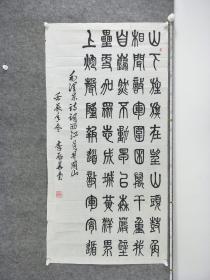 山下旌旗在望山頭鼓角
相聞敵軍圍困萬千重我
自巋然不動早已森嚴壁
壘更加眾志成城黃洋界
上炮聲隆報道敵軍宵遁
毛澤東詩詞西江月井岡山
年冬 李